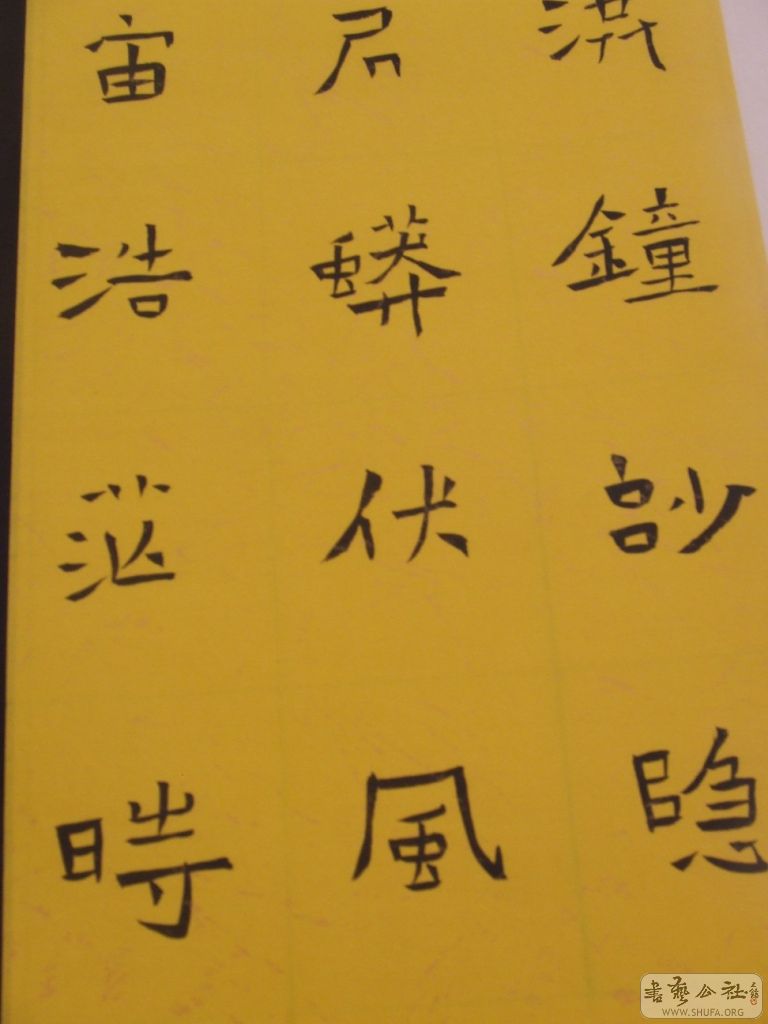 洪鐘訬隐
蟒伏風
宙浩茫時
書藝公社
WWW.SHUFA.ORG